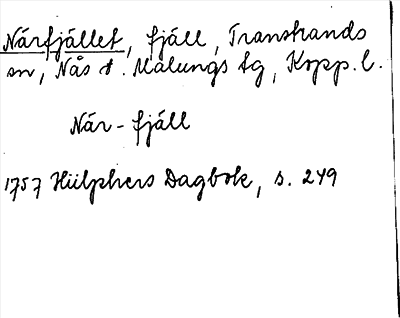 Närfjället, fjäll, Transtrands
sn, Nås o. Malungs tg, Kopp. l.
När-fjäll
1757 Hülphers Dagbok, s. 249